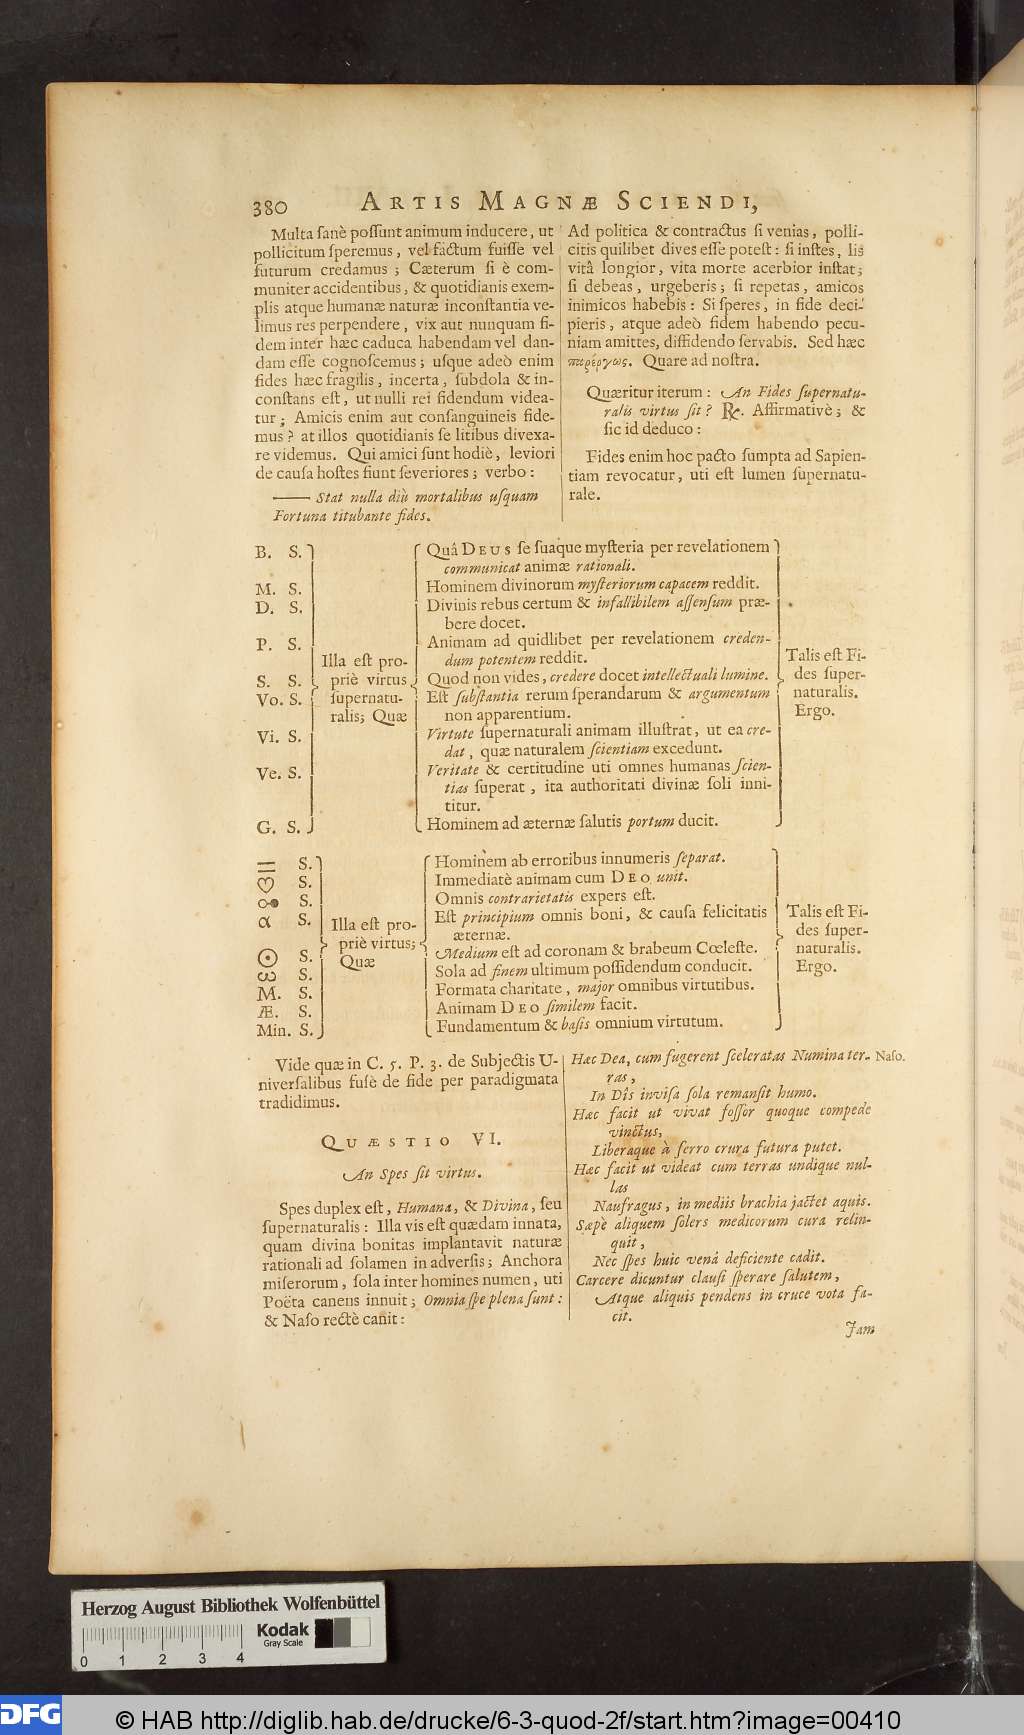 380 ARTIS MAGNÆ SCIENDI,
Multa ſanè poſſunt animum inducere, ut
pollicitum ſperemus, vel factum fuiſſe vel
futurum credamus; Cæterum ſi è com-
muniter accidentibus, & quotidianis exem-
plis atque humanæ naturæ inconſtantia ve-
limus res perpendere, vix aut nunquam fi-
dem inter hæc caduca habendam vel dan-
dam eſſe cognoſcemus; uſque adeò enim
fides hæc fragilis, incerta, ſubdola & in-
conſtans eſt, ut nulli rei fidendum videa-
tur; Amicis enim aut conſanguineis fide-
mus? at illos quotidianis ſe litibus divexa-
re videmus. Qui amici ſunt hodiè, leviori
de cauſa hoſtes fiunt ſeveriores; verbo:
—— Stat nulla diù mortalibus uſquam
Fortuna titubante fides.
Ad politica & contractus ſi venias, polli-
citis quilibet dives eſſe poteſt: ſi inſtes, lis
vitâ longior, vita morte acerbior inſtat;
ſi debeas, urgeberis; ſi repetas, amicos
inimicos habebis: Si ſperes, in fide deci-
pieris, atque adeò fidem habendo pecu-
niam amittes, diffidendo ſervabis. Sed hæc
παρέργως. Quare ad noſtra.
Quæritur iterum: An Fides ſupernatu-
ralis virtus ſit? ℞. Affirmativè; &
ſic id deduco:
Fides enim hoc pacto ſumpta ad Sapien-
tiam revocatur, uti eſt lumen ſupernatu-
rale.
B. S.
M. S.
D. S.
P. S.
S. S.
Vo. S.
Vi. S.
Ve. S.
G. S.
Illa eſt pro-
priè virtus
ſupernatu-
ralis; Quæ
Quâ DEUS ſe ſuaque myſteria per revelationem
communicat animæ rationali.
Hominem divinorum myſteriorum capacem reddit.
Divinis rebus certum & infallibilem aſſenſum præ-
bere docet.
Animam ad quidlibet per revelationem creden-
dum potentem reddit.
Quod non vides, credere docet intellectuali lumine.
Eſt ſubſtantia rerum ſperandarum & argumentum
non apparentium.
Virtute ſupernaturali animam illuſtrat, ut ea cre-
dat, quæ naturalem ſcientiam excedunt.
Veritate & certitudine uti omnes humanas ſcien-
tias ſuperat, ita authoritati divinæ ſoli inni-
titur.
Hominem ad æternæ ſalutis portum ducit.
Talis eſt Fi-
des ſuper-
naturalis.
Ergo.
= S.
♡ S.
S.
α S.
☉ S.
ω S.
M. S.
Æ. S.
Min. S.
Illa eſt pro-
priè virtus;
Quæ
Hominem ab erroribus innumeris ſeparat.
Immediatè animam cum DEO unit.
Omnis contrarietatis expers eſt.
Eſt principium omnis boni, & cauſa felicitatis
æternæ.
Medium eſt ad coronam & brabeum Cœleſte.
Sola ad finem ultimum poſſidendum conducit.
Formata charitate, major omnibus virtutibus.
Animam DEO ſimilem facit.
Fundamentum & baſis omnium virtutum.
Talis eſt Fi-
des ſuper-
naturalis.
Ergo.
Vide quæ in C. 5. P. 3. de Subjectis U-
niverſalibus fuſè de fide per paradigmata
tradidimus.
QUÆSTIO VI.
An Spes ſit virtus.
Spes duplex eſt, Humana, & Divina, ſeu
ſupernaturalis: Illa vis eſt quædam innata,
quam divina bonitas implantavit naturæ
rationali ad ſolamen in adverſis; Anchora
miſerorum, ſola inter homines numen, uti
Poëta canens innuit; Omnia ſpe plena ſunt:
& Naſo rectè canit:
Hæc Dea, cum fugerent ſceleratas Numina ter- Naſo.
ras,
In Dîs inviſa ſola remanſit humo.
Hæc facit ut vivat foſſor quoque compede
vinctus,
Liberaque à ferro crura futura putet.
Hæc facit ut videat cum terras undique nul-
las
Naufragus, in mediis brachia jactet aquis.
Sæpè aliquem ſolers medicorum cura relin-
quit,
Nec ſpes huic venâ deficiente cadit.
Carcere dicuntur clauſi ſperare ſalutem,
Atque aliquis pendens in cruce vota fa-
cit.
Jam
Herzog August Bibliothek Wolfenbüttel
Kodak
Gray Scale
0 1 2 3 4
DFG
© HAB http://diglib.hab.de/drucke/6-3-quod-2f/start.htm?image=00410